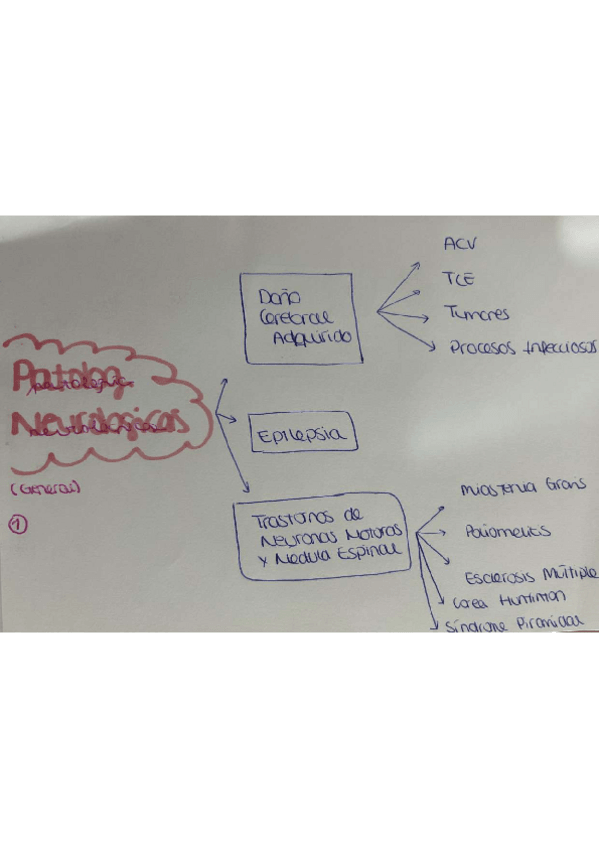 Patolog
patologias
Neurologicas
neurologicas
(General)
1
Daño
Cerebral
Adquirido
ACV
TCE
Tumores
Procesos Infecciosos
Epilepsia
Trastornos de
Neuronas Motoras
y Medula Espinal
Miastenia Gravis
Poliomelitis
Esclerosis Múltiple
Corea Huntinton
Síndrome Piramidal